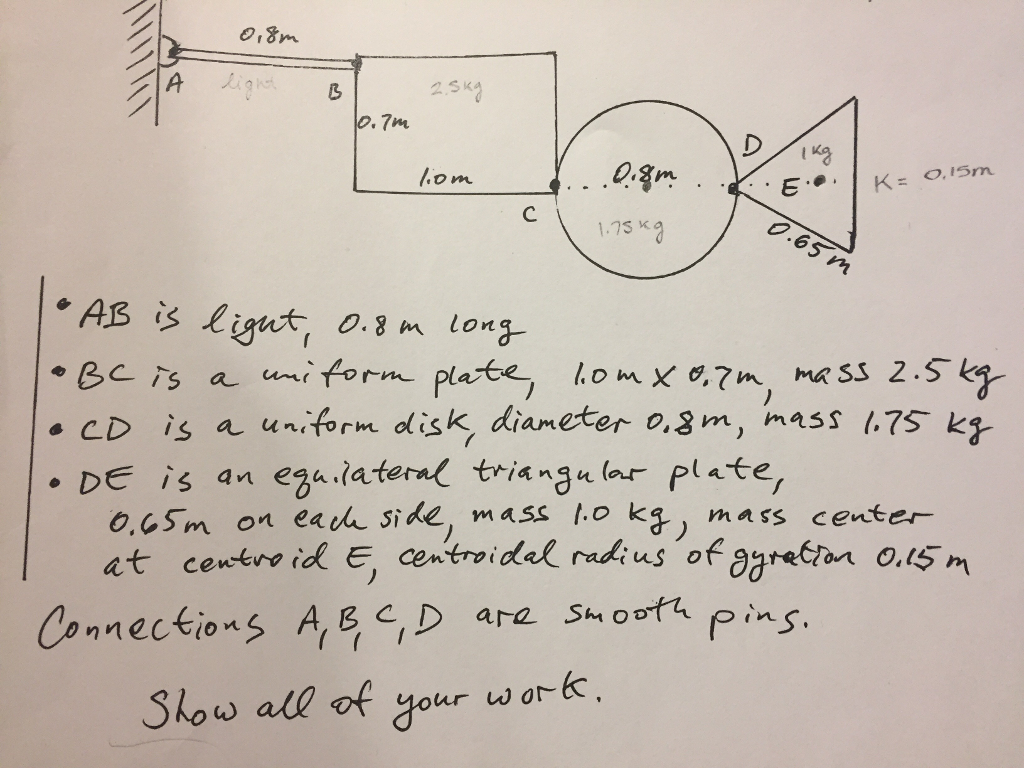 0.8m
A
light
B
2.5kg
0.7m
1.0m
C
0.8m
1.75kg
D
1kg
E
K= 0.15m
0.65m
• AB is light, 0.8m long
• BC is a uniform plate, 1.0m X 0.7m, mass 2.5 kg
• CD is a uniform disk, diameter 0.8m, mass 1.75 kg
• DE is an equilateral triangular plate,
0.65m on each side, mass 1.0 kg, mass center
at centroid E, centroidal radius of gyration 0.15 m
Connections A, B, C, D are smooth pins.
Show all of your work.